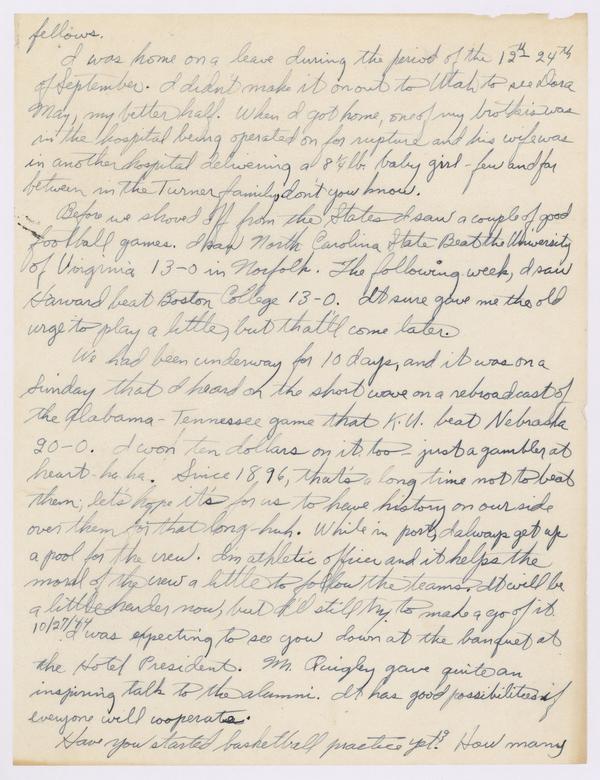 fellows.
I was home on a leave during the period of the 12th - 24th
of September. I didn't make it on out to Utah to see Dora
May, my better half. When I got home, one of my brothers was
in the hospital being operated on for rupture and his wife was
in another hospital delivering a 8¼ lb. baby girl - few and far
between in the Turner family, don't you know.
Before we shoved off from the States I saw a couple of good
football games. I saw North Carolina State Beat the University
of Virginia 13-0 in Norfolk. The following week, I saw
Harvard beat Boston College 13-0. It sure gave me the old
urge to play a little, but that'll come later.
We had been underway for 10 days, and it was on a
Sunday that I heard on the short wave on a rebroadcast of
the Alabama - Tennessee game that K.U. beat Nebraska
20-0. I won ten dollars on it too - just a gambler at
heart - ha ha. Since 1896, that's a long time not to beat
them; let's hope it's for us to have history on our side
over them for that long - huh. While in port, I always get up
a pool for the crew. I'm athletic officer and it helps the
moral of the crew a little to follow the teams. It will be
a little harder now, but I'll still try to make a go of it.
10/27/44
I was expecting to see you down at the banquet at
the Hotel President. Mr. Quigley gave quite an
inspiring talk to the alumni. It has good possibilities if
everyone will cooperate.
Have you started basketball practice yet? How many